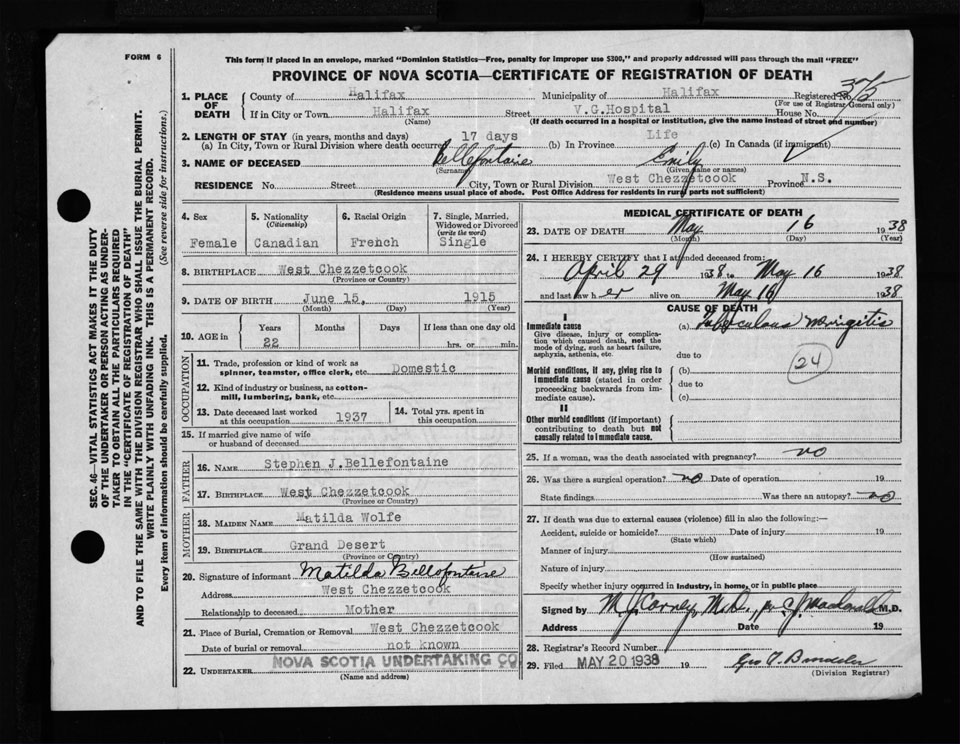 FORM 6
This form if placed in an envelope, marked "Dominion Statistics—Free, penalty for improper use $300," and properly addressed will pass through the mail "FREE"
PROVINCE OF NOVA SCOTIA—CERTIFICATE OF REGISTRATION OF DEATH
1. PLACE OF DEATH
County of Halifax Municipality of Halifax Registered No. 375
(For use of Registrar General only)
If in City or Town Halifax Street V.G.Hospital House No.
(Name) (If death occurred in a hospital or institution, give the name instead of street and number)
2. LENGTH OF STAY (in years, months and days)
(a) In City, Town or Rural Division where death occurred 17 days (b) In Province Life (c) In Canada (if immigrant)
3. NAME OF DECEASED Bellefontaine Emily
(Surname) (Given name or names)
RESIDENCE No. Street City, Town or Rural Division West Chezzetcook Province N.S.
(Residence means usual place of abode. Post Office Address for residents in rural parts not sufficient)
4. Sex Female
5. Nationality (Citizenship) Canadian
6. Racial Origin French
7. Single, Married, Widowed or Divorced (write the word) Single
8. BIRTHPLACE West Chezzetcook
(Province or Country)
9. DATE OF BIRTH June 15, 1915
(Month) (Day) (Year)
10. AGE in Years Months Days If less than one day old
22 hrs. or min.
OCCUPATION
11. Trade, profession or kind of work as spinner, teamster, office clerk, etc. Domestic
12. Kind of industry or business, as cotton-mill, lumbering, bank, etc.
13. Date deceased last worked at this occupation 1937
14. Total yrs. spent in this occupation
15. If married give name of wife or husband of deceased
FATHER
16. NAME Stephen J.Bellefontaine
17. BIRTHPLACE West Chezzetcook
(Province or Country)
MOTHER
18. MAIDEN NAME Matilda Wolfe
19. BIRTHPLACE Grand Desert
(Province or Country)
20. Signature of informant Matilda Bellefontaine
Address West Chezzetcook
Relationship to deceased Mother
21. Place of Burial, Cremation or Removal West Chezzetcook
Date of burial or removal not known
22. UNDERTAKER NOVA SCOTIA UNDERTAKING CO
(Name and address)
MEDICAL CERTIFICATE OF DEATH
23. DATE OF DEATH May 16 1938
(Month) (Day) (Year)
24. I HEREBY CERTIFY that I attended deceased from:
April 29 1938 to May 16 1938
and last saw her alive on May 16 1938
CAUSE OF DEATH
I
Immediate cause (a)
Give disease, injury or complication which caused death, not the mode of dying, such as heart failure, asphyxia, asthenia, etc.
due to
24
Morbid conditions, if any, giving rise to immediate cause (stated in order proceeding backwards from immediate cause).
(b)
due to
(c)
II
Other morbid conditions (if important) contributing to death but not causally related to immediate cause.
25. If a woman, was the death associated with pregnancy? no
26. Was there a surgical operation? no Date of operation 19
State findings Was there an autopsy? no
27. If death was due to external causes (violence) fill in also the following:—
Accident, suicide or homicide? Date of injury 19
(State which)
Manner of injury
(How sustained)
Nature of injury
Specify whether injury occurred in industry, in home, or in public place
Signed by M.J. Carney, M.D., per C.J. Macdonald M.D.
Address Date 19
28. Registrar's Record Number
29. Filed MAY 20 1938 19
(Division Registrar)
SEC. 46—VITAL STATISTICS ACT MAKES IT THE DUTY
OF THE UNDERTAKER OR PERSON ACTING AS UNDER-
TAKER TO OBTAIN ALL THE PARTICULARS REQUIRED
IN THE "CERTIFICATE OF REGISTRATION OF DEATH"
AND TO FILE THE SAME WITH THE DIVISION REGISTRAR WHO SHALL ISSUE THE BURIAL PERMIT.
WRITE PLAINLY WITH UNFADING INK. THIS IS A PERMANENT RECORD.
Every item of information should be carefully supplied. (See reverse side for instructions.)